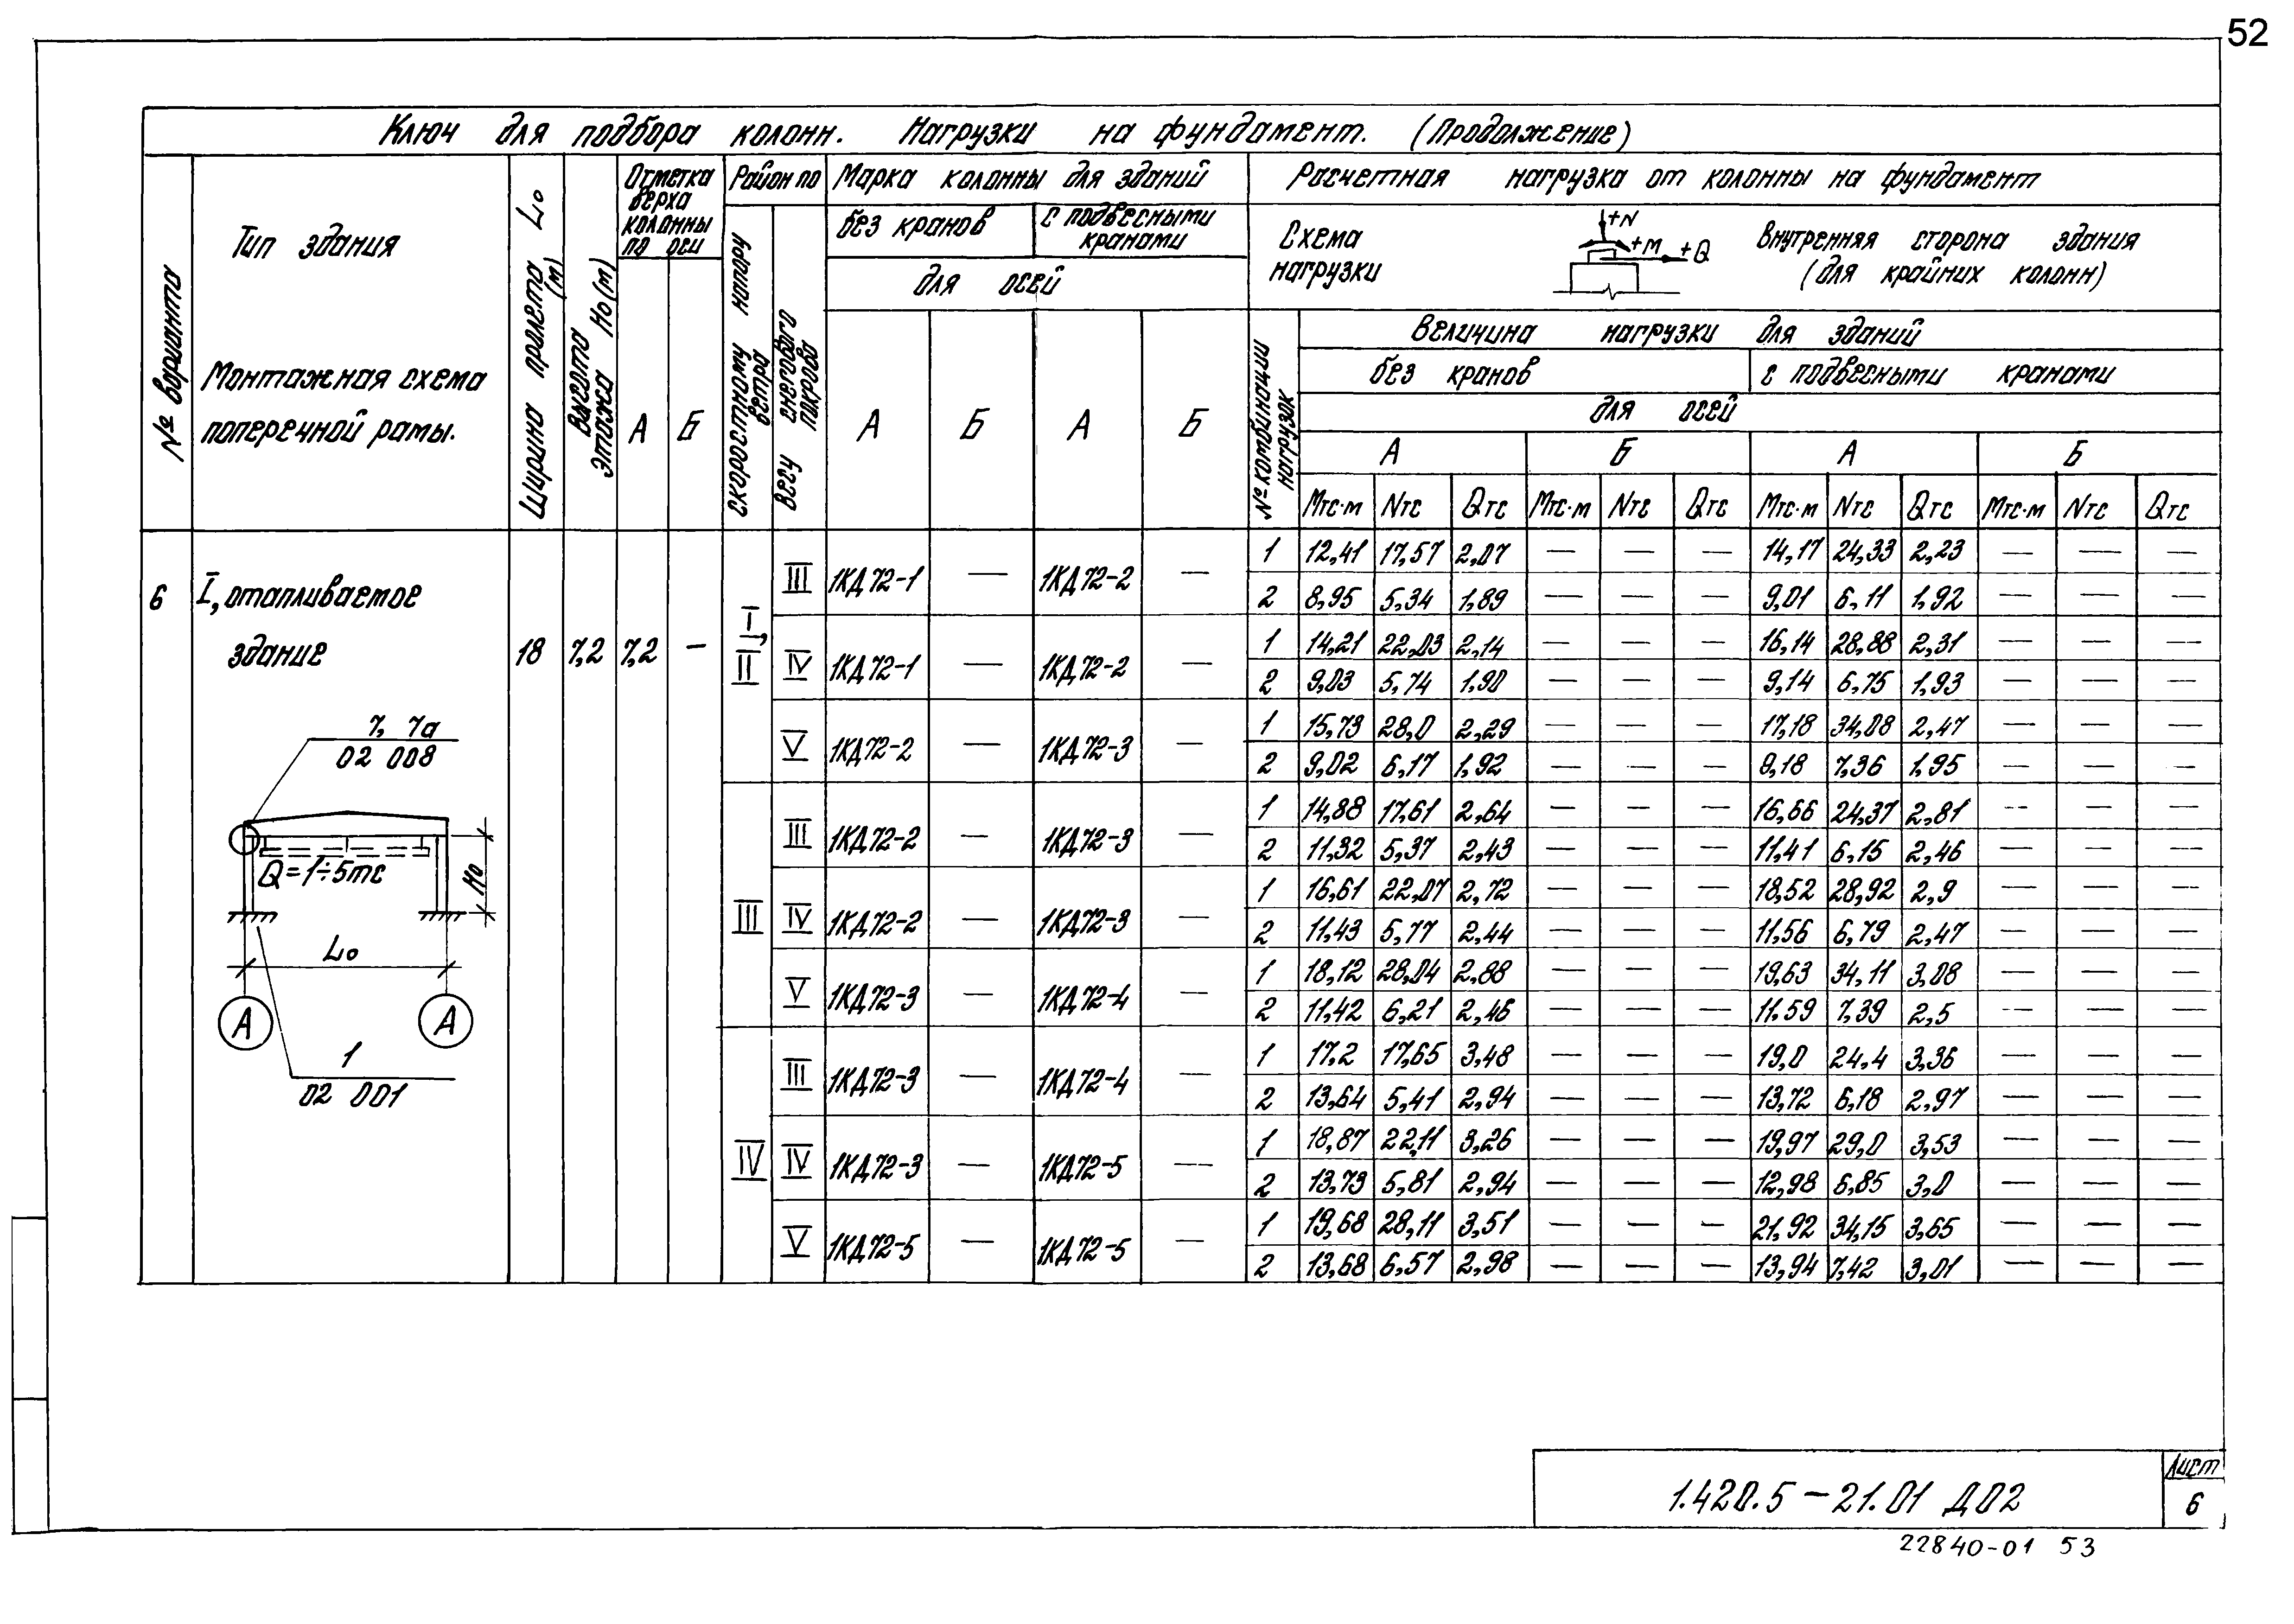 52
Ключ для подбора колонн. Нагрузки на фундамент. (Продолжение)
№ варианта
Тип здания
Монтажная схема
поперечной рамы.
Ширина пролета L₀ (м)
Высота этажа H₀ (м)
Отметка верха колонны по оси
А Б
Район по
скоростному напору ветра
весу снегового покрова
Марка колонны для зданий
без кранов
с подвесными кранами
для осей
А Б А Б
Расчетная нагрузка от колонны на фундамент
Схема нагрузки
+N
+M +Q
Внутренняя сторона здания
(для крайних колонн)
№ комбинации нагрузок
Величина нагрузки для зданий
без кранов с подвесными кранами
для осей
А Б А Б
Mтс·м Nтс Qтс Mтс·м Nтс Qтс Mтс·м Nтс Qтс Mтс·м Nтс Qтс
6 I, отапливаемое
здание
18 7,2 7,2 —
7, 7а
02 008
Q=1÷5тс
H₀
L₀
А А
1
02 001
I, II
III 1КД72-1 — 1КД72-2 —
1 12,41 17,57 2,07 — — — 14,17 24,33 2,23 — — —
2 8,95 5,34 1,89 — — — 9,01 6,11 1,92 — — —
IV 1КД72-1 — 1КД72-2 —
1 14,21 22,03 2,14 — — — 16,14 28,88 2,31 — — —
2 9,03 5,74 1,90 — — — 9,14 6,75 1,93 — — —
V 1КД72-2 — 1КД72-3 —
1 15,73 28,0 2,29 — — — 17,18 34,08 2,47 — — —
2 9,02 6,17 1,92 — — — 9,18 7,36 1,95 — — —
III
III 1КД72-2 — 1КД72-3 —
1 14,88 17,61 2,64 — — — 16,66 24,37 2,81 — — —
2 11,32 5,37 2,43 — — — 11,41 6,15 2,46 — — —
IV 1КД72-2 — 1КД72-3 —
1 16,61 22,07 2,72 — — — 18,52 28,92 2,9 — — —
2 11,43 5,77 2,44 — — — 11,56 6,79 2,47 — — —
V 1КД72-3 — 1КД72-4 —
1 18,12 28,04 2,88 — — — 19,63 34,11 3,08 — — —
2 11,42 6,21 2,46 — — — 11.59 7,39 2,5 — — —
IV
III 1КД72-3 — 1КД72-4 —
1 17,2 17,65 3,48 — — — 19,0 24,4 3,36 — — —
2 13,64 5,41 2,94 — — — 13,72 6,18 2,97 — — —
IV 1КД72-3 — 1КД72-5 —
1 18,87 22,11 3,26 — — — 19,97 29,0 3,53 — — —
2 13,73 5,81 2,94 — — — 12,98 6,85 3,0 — — —
V 1КД72-5 — 1КД72-5 —
1 19,68 28,11 3,51 — — — 21,92 34,15 3,65 — — —
2 13,68 6,57 2,98 — — — 13,94 7,42 3,01 — — —
1.420.5-21.01 Д02
Лист
6
22840-01 53